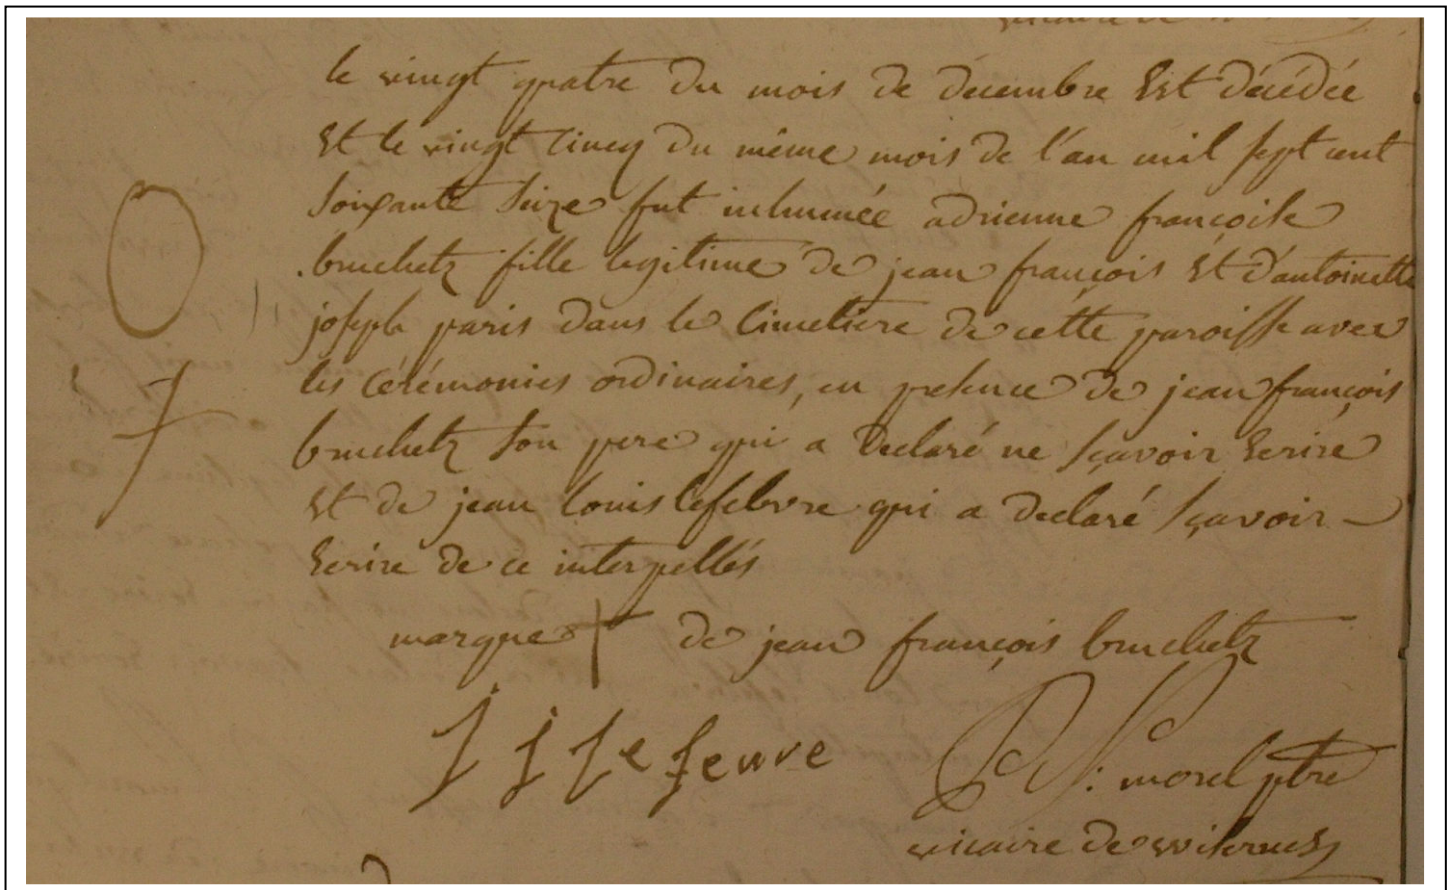 vicaire de
le vingt quatre du mois de decembre Est décédée
Et le vingt cincq du même mois de l'an mil sept cent
soixante seize fut inhumée adrienne françoise
bruchetz fille legitime de jean françois Et d'antoinette
joseph paris dans le cimetiere de cette paroisse avec
les cérémonies ordinaires, en presence de jean françois
bruchetz son pere qui a declaré ne sçavoir Ecrire
Et de jean louis lefebvre qui a declaré sçavoir
Ecrire de ce interpellés
marque de jean françois bruchetz
j j le feuvre
morel ptre
vicaire de